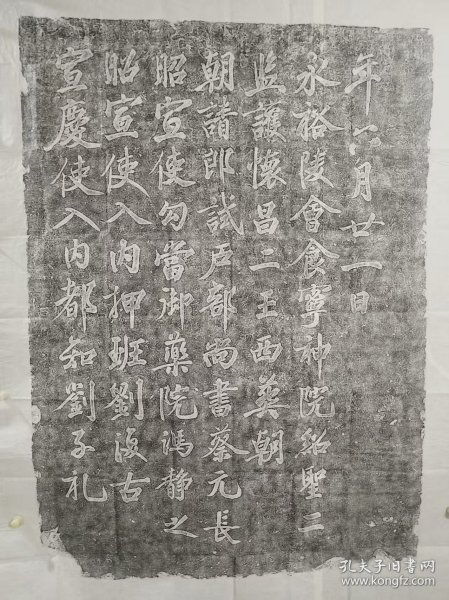 宣慶使入内都知劉子礼
昭宣使入内押班劉復古
昭宣使勾當御藥院馮靜之
朝請郎試戶部尚書蔡元長
監護懷昌二王西葬朝
永裕陵會食寧神院紹聖二
年六月廿一日
孔夫子旧书网
www.kongfz.com